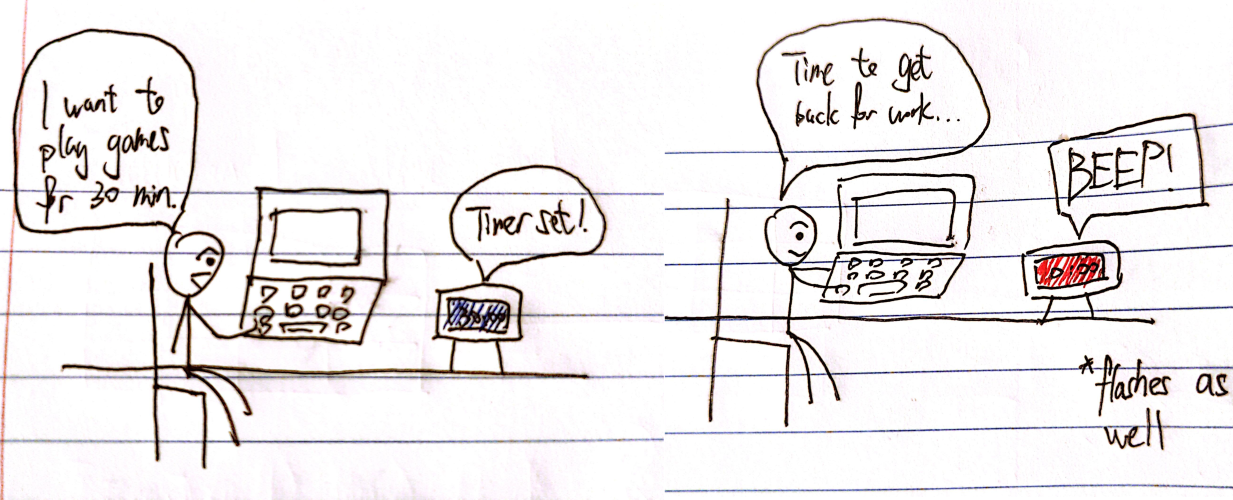 I want to
play games
for 30 min.
Timer set!
Time to get
back for work...
BEEP!
*flashes as
well